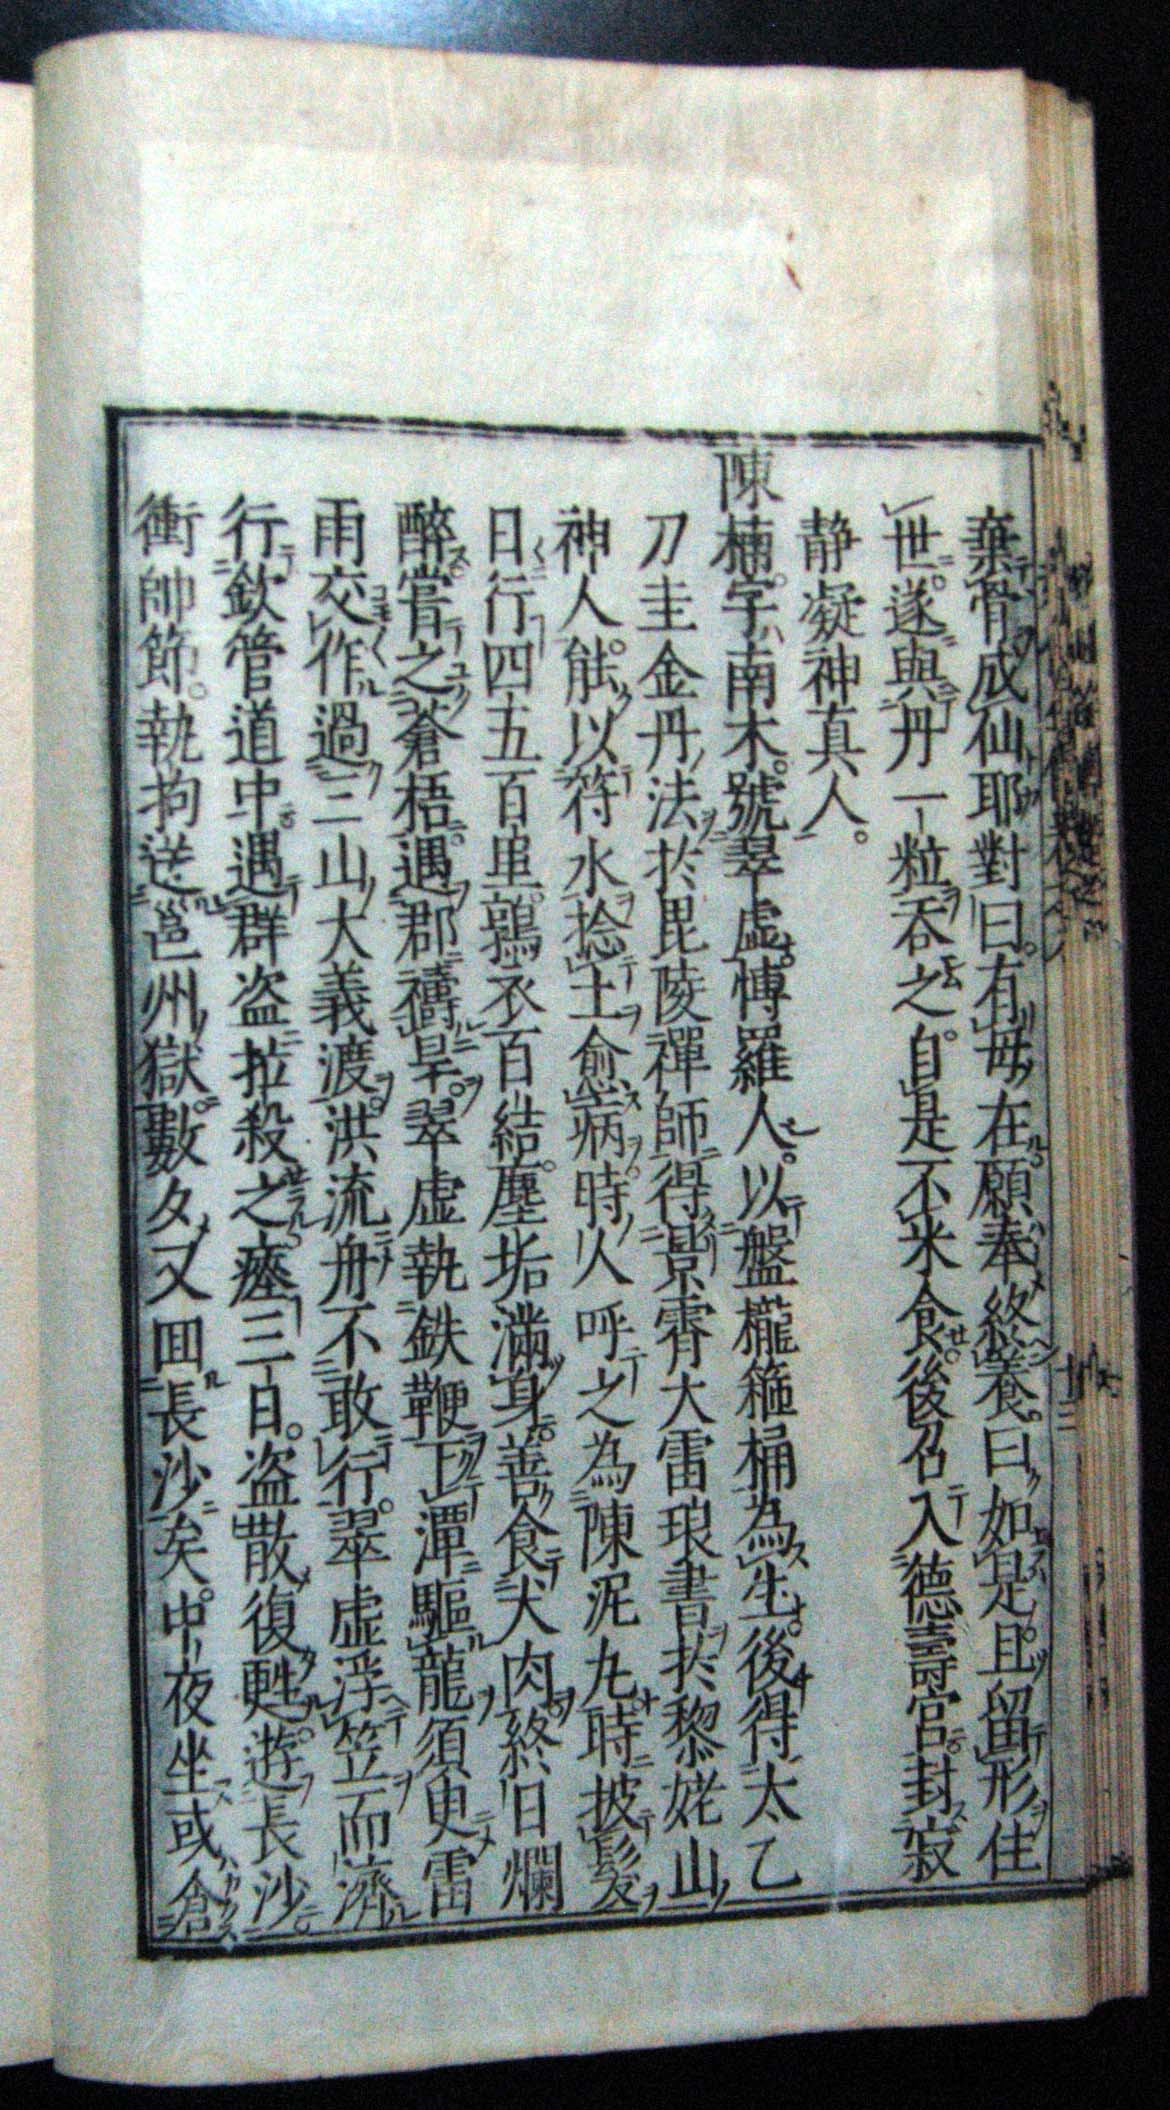 棄骨成仙耶對曰有母在願奉終養曰如是且留形住
世遂與丹一粒吞之自是不米食後召入德壽宮封寂
靜凝神真人
陳楠字南木號翠虛愽羅人以盤櫳箍桶為生後得太乙
刀圭金丹法於毘陵禪師得景霄大雷琅書於黎姥山
神人能以符水捻土愈病時人呼之為陳泥丸時披髮
日行四五百里鶉衣百結塵垢滿身善食犬肉終日爛
醉嘗之蒼梧遇郡禱旱翠虛執鉄鞭下潭驅龍須臾雷
雨交作過三山大義渡洪流舟不敢行翠虛浮笠而濟
行欽管道中遇群盗拉殺之瘞三日盗散復甦遊長沙
衝帥節執拘送邕州獄數夕又回長沙矣中夜坐或倉